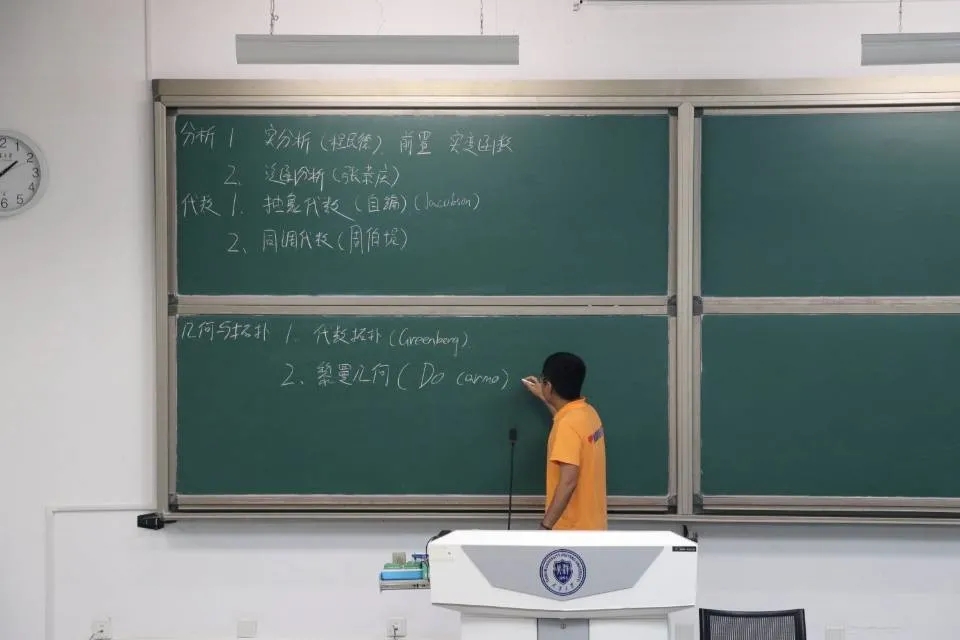 分析 1 实分析 (程民德) 前置 实变函数
2. 泛函分析 (张恭庆)
代数 1. 抽象代数 (自编) (Jacobson)
2、同调代数 (周伯埙)
几何与拓扑 1. 代数拓扑 (Greenberg)
2、黎曼几何 (Do Carmo)
12
1
2
3
4
5
6